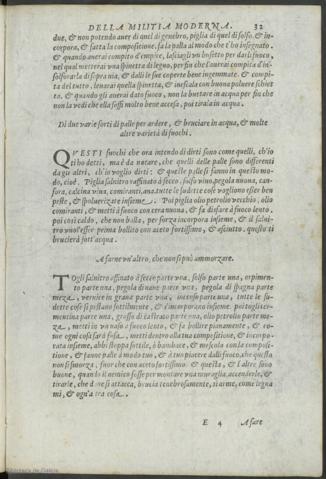 DELLA MILITIA MODERNA. 32
due, & non potendo auer di quel di genebro, piglia di quel di solfo, & in-
corpora, & fatta la compositione, fa la palla al modo che t'ho insegnato.
& quando auerai compito d'empire, lasciagli vn busetto per dar il fuoco,
nel qual metterai vna spinetta di legno, per fin che l'auerai compita d'in-
solforarla di sopra via, & dalli le sue coperte bene ingemmate. & compi-
ta del tutto, leuarai quella spinetta, & inescala con buona poluere schiet
ta, & quando gli auerai dato fuoco, non la buttare in acqua per fin che
non la vedi che ella soffi molto bene accesa, poi tirala in acqua.
Di due varie sorti di palle per ardere, & bruciare in acqua, & molte
altre varietà di fuochi.
QVESTI fuochi che ora intendo di dirti sono come quelli, ch'io
ti ho detti, ma è da notare, che quelli delle palle sono differenti
da gli altri, ch'io voglio dirti: & quelle palle si fanno in questo mo-
do, cioè. Piglia salnitro raffinato à secco, solfo viuo, pegola nauna, can-
fora, calcina viua, comiranti, ana. tutte le sudette cose vogliono esser ben
peste, & spoluerizate insieme. Poi piglia olio petrolio vecchio, olio
comiranti, & metti à fuoco con cera nuoua, & fa disfare à fuoco lento,
poi così caldo, che non bolla, per forza incorpora insieme, & il salni-
tro vuol'esser prima bollito con aceto fortissimo, & asciutto, questo ti
brucierà sott'acqua.
A farne vn'altro, che non si può ammorzare.
TOgli salnitro affinato à secco parte vna, solfo parte una, orpimen-
to parte vna, pegola nauale parte vna, pegola di spagna parte
meza, vernice in grana parte vna, incenso parte una, tutte le su-
dette cose si pestano sottilmente, & s'incorporano insieme. poi togli tre-
mentina parte una, grasso di castrato parte vna, olio petrolio parte me-
za, metti in vn vaso à fuoco lento, & fa bollire pianamente, & co-
me ogni cosa sarà fusa, metti dentro alla tua compositione, & incorpo-
rata insieme, abbi stoppa sottile, ò bambace, & mescola con la composi-
tione, & fanne palle à modo tuo, & à tuo piacere dalli fuoco, che questa
non si smorza, fuor che con aceto fortissimo. & questa, & l'altre sono
buone, quando il nemico fosse per montare vna muraglia, accenderle, &
tirarle, che doue si attacca, brucia tenebrosamente, sì arme, come legna
mi, & ogn'altra cosa.
E 4 A fare